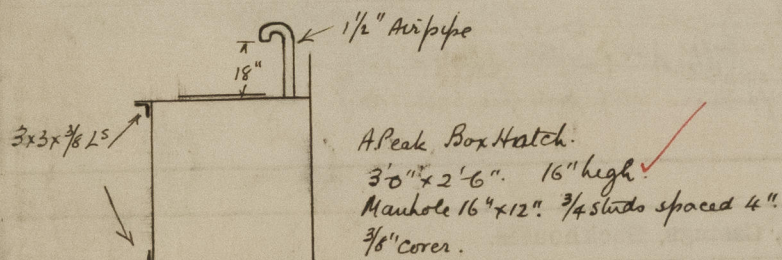 1½" Airpipe
18"
3x3x3/8 Ls
A Peak Box Hatch.
3'-0" x 2'-6". 16" high.
Manhole 16" x 12". 3/4 studs spaced 4".
3/8" cover.